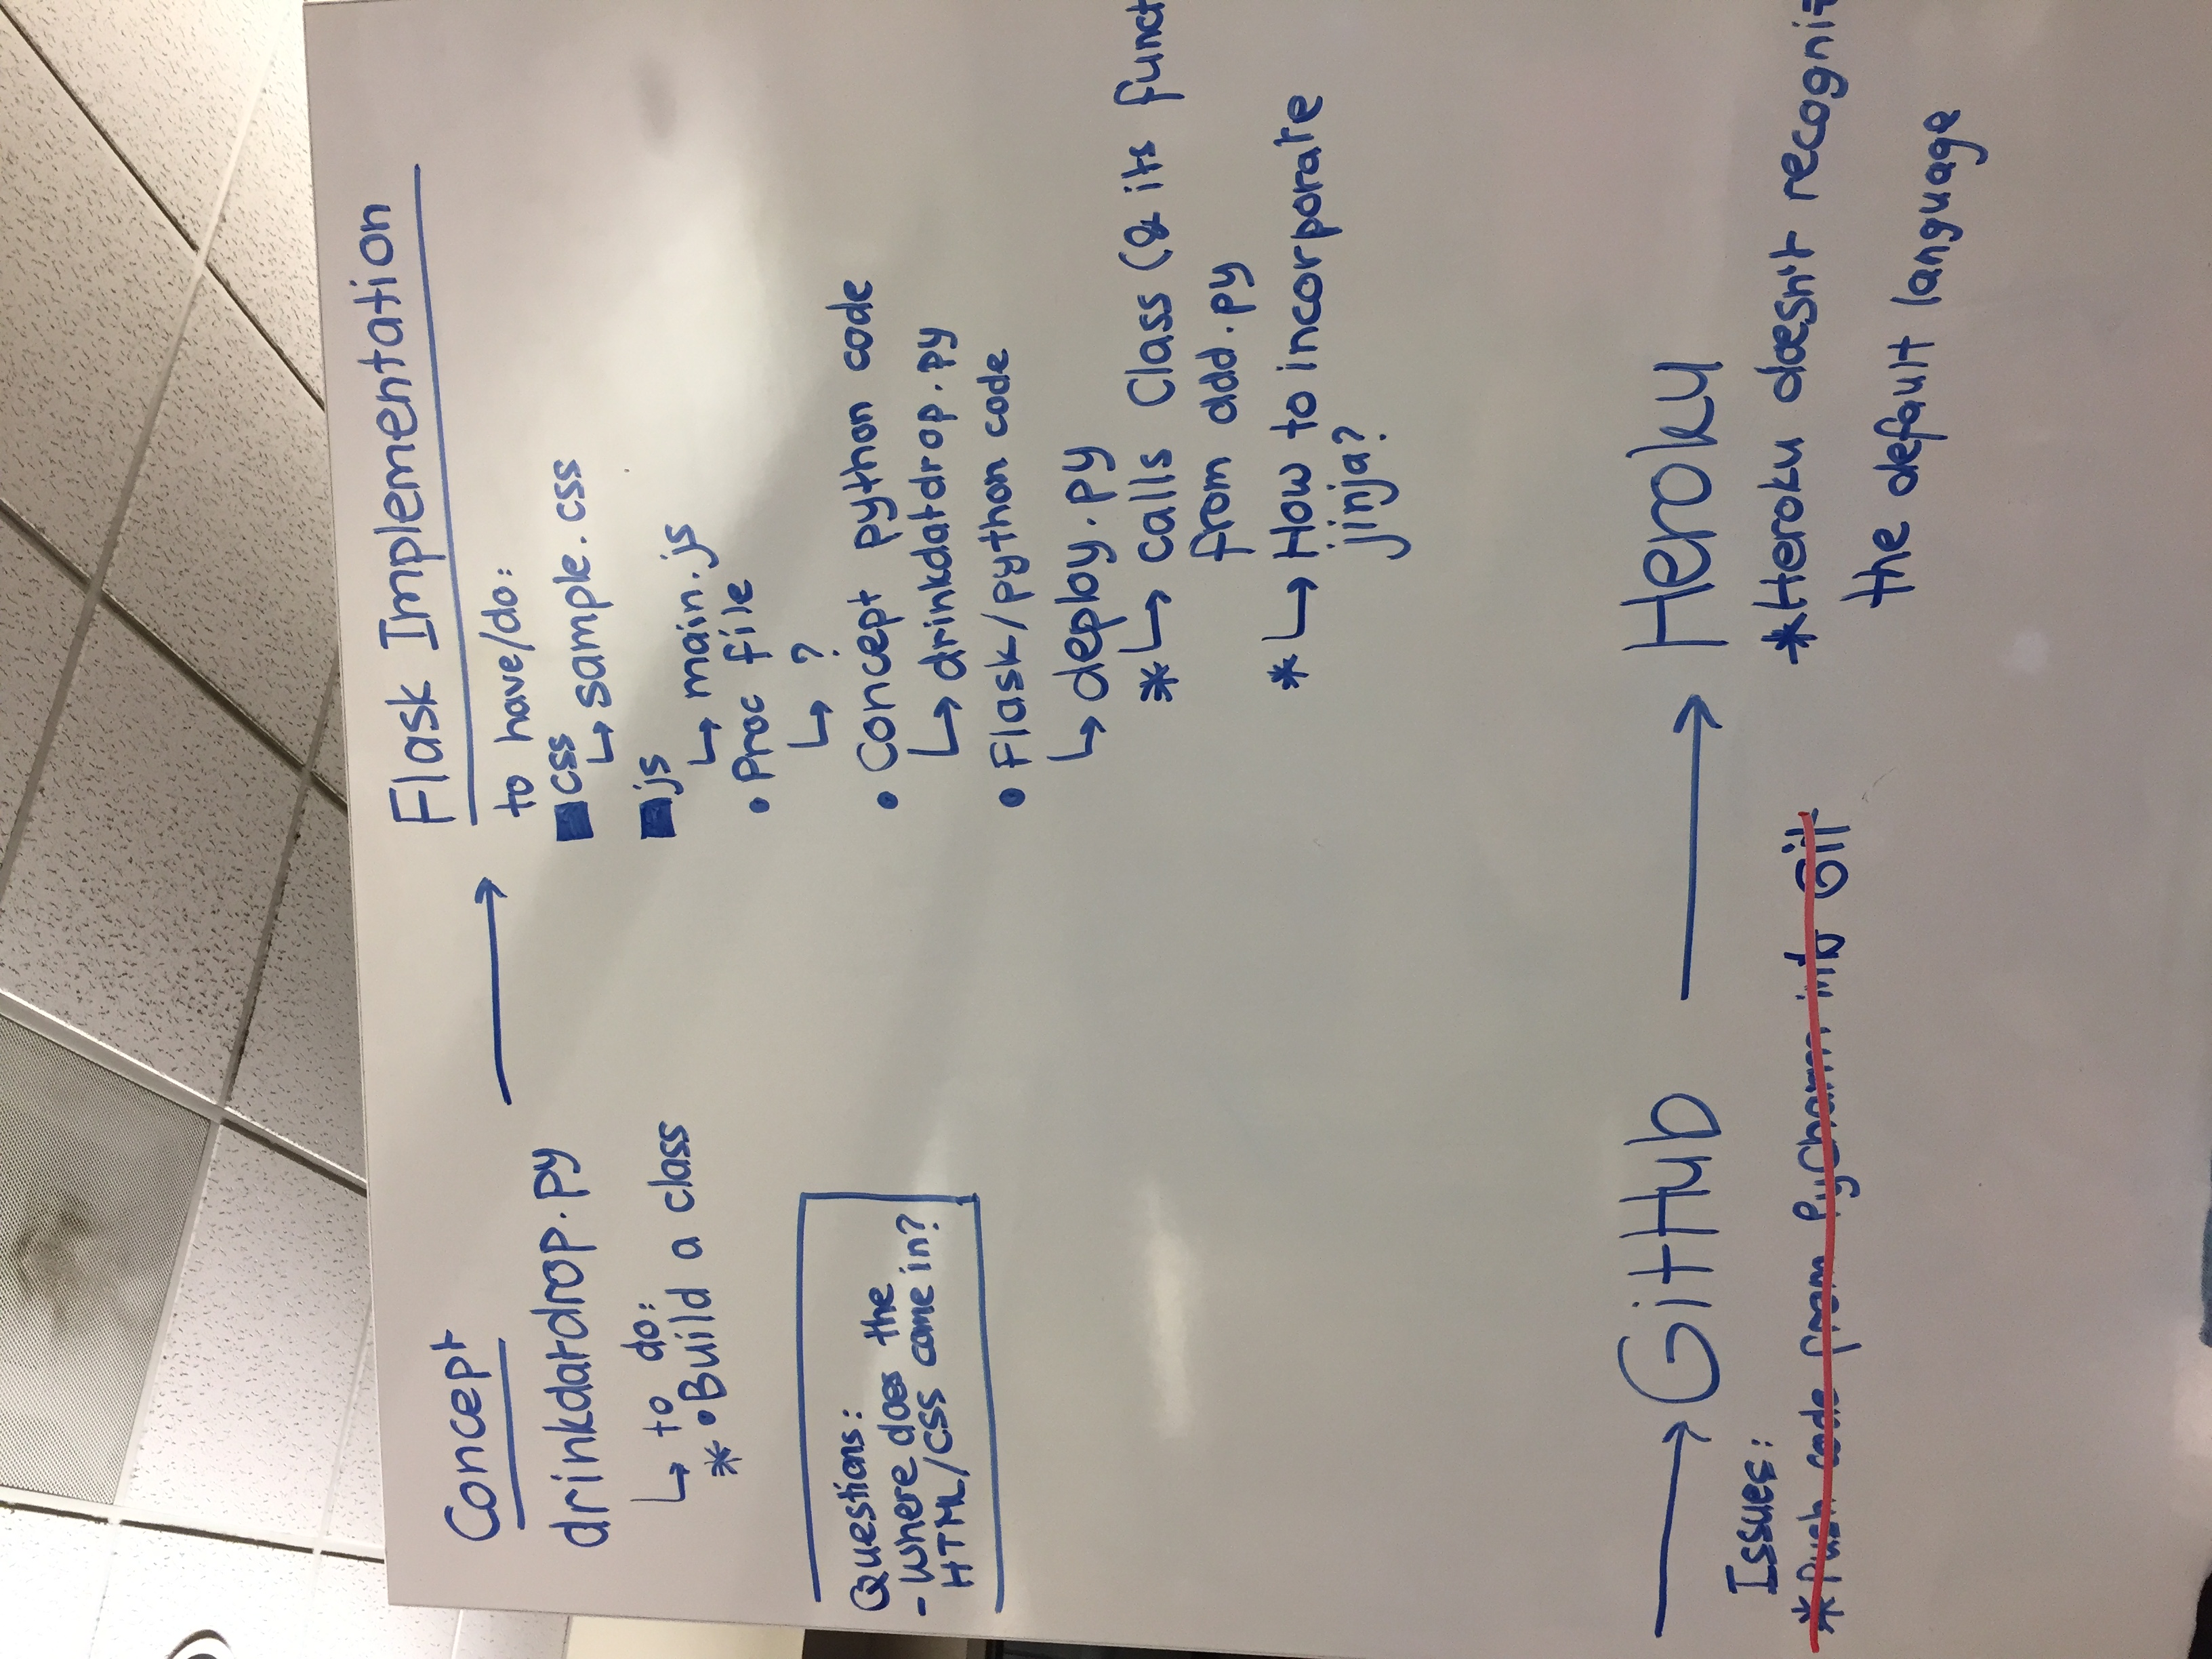 Concept
drinkdatdrop.py
↳ to do:
* • Build a class
Questions:
- Where does the
HTML/CSS come in?
→ Flask Implementation
to have/do:
■ css
↳ sample.css
■ js
↳ main.js
• Proc file
↳ ?
• Concept python code
↳ drinkdatdrop.py
• Flask/python code
↳ deploy.py
* ↳ calls Class (& its funct
from add.py
* ↳ How to incorporate
jinja?
→ GitHub
Issues:
* Push code from PyCharm into Git
→ Heroku
* Heroku doesn't recogni
the default language